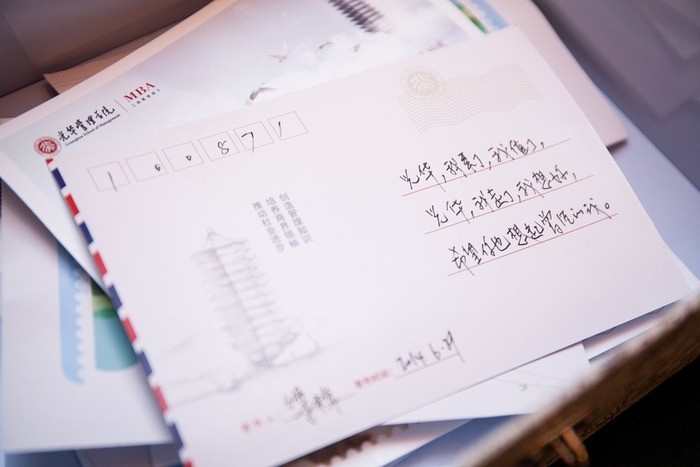 光华管理学院
Guanghua School of Management
MBA
100871
光华,我来了,我
光华,我走了,我想你,
希望你也想起曾经的我。
创造管理知识
培养商界领袖
推动社会进步
2014.6.29